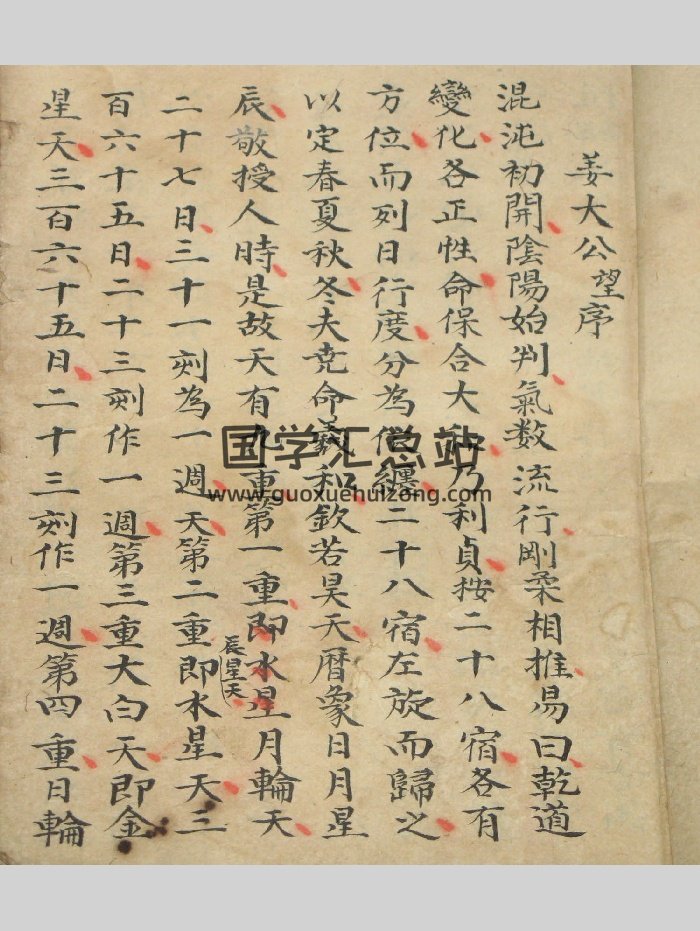 姜大公望序
混沌初開陰陽始判氣数流行剛柔相推易曰乾道
變化各正性命保合大和乃利貞按二十八宿各有
方位而列日行度分為纏二十八宿左旋而歸之
以定春夏秋冬夫尭命羲和欽若昊天暦象日月星
辰敬授人時是故天有九重第一重即水星月輪天
辰星天
二十七日三十一刻為一週天第二重即水星天三
百六十五日二十三刻作一週第三重大白天即金
星天三百六十五日二十三刻作一週第四重日輪
国学汇总站
www.guoxuehuizong.com